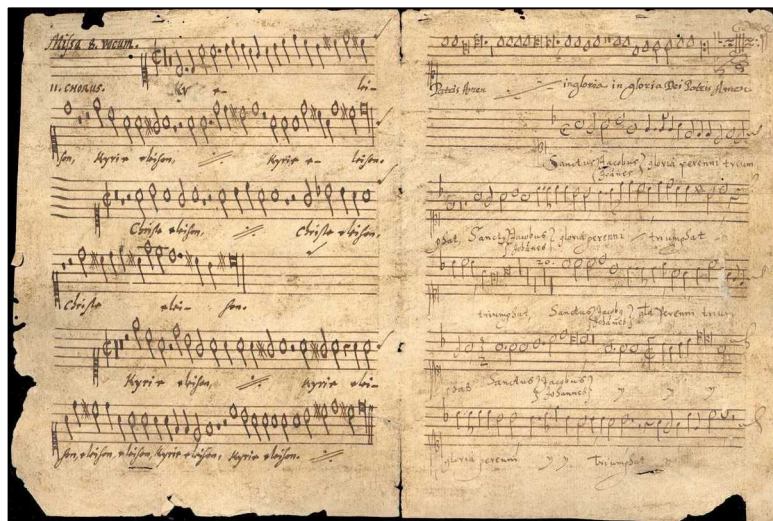 Missa 8. vocum.
II. CHORUS. Ky e- lei-
son, Kyrie eleison, Kyrie e- leison.
Christe eleison, Christe eleison.
Christe elei- son.
Kyrie eleison, Kyrie elei-
son, eleison, eleison, Kyrie eleison, Kyrie eleison.
Patris Amen in gloria in gloria Dei Patris Amen
Sanctus Jacobus gloria perenni trium
Johanes
phat, Sanctus Jacobus gloria perenni triumphat
Johanes
20.
triumphat, Sanctus Jacobs gla perenni trium
Johanes
phat Sanctus Jacobus
Johannes
gloria perenni triumphat